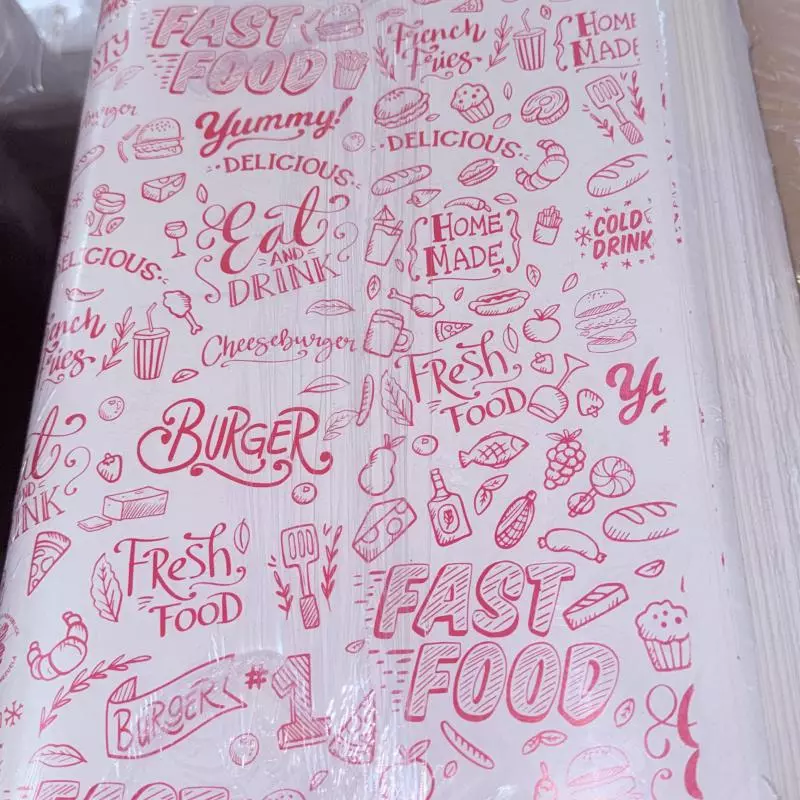 FAST
FOOD
French
Fries
HOME
MADE
STY
burger
Yummy!
DELICIOUS
DELICIOUS
Eat
AND
DRINK
HOME
MADE
COLD
DRINK
ELICIOUS
ench
ries
Cheeseburger
FRESH
FOOD
Yu
BURGER
t
ND
INK
FRESH
FOOD
FAST
FOOD
BURGER #1
FAST